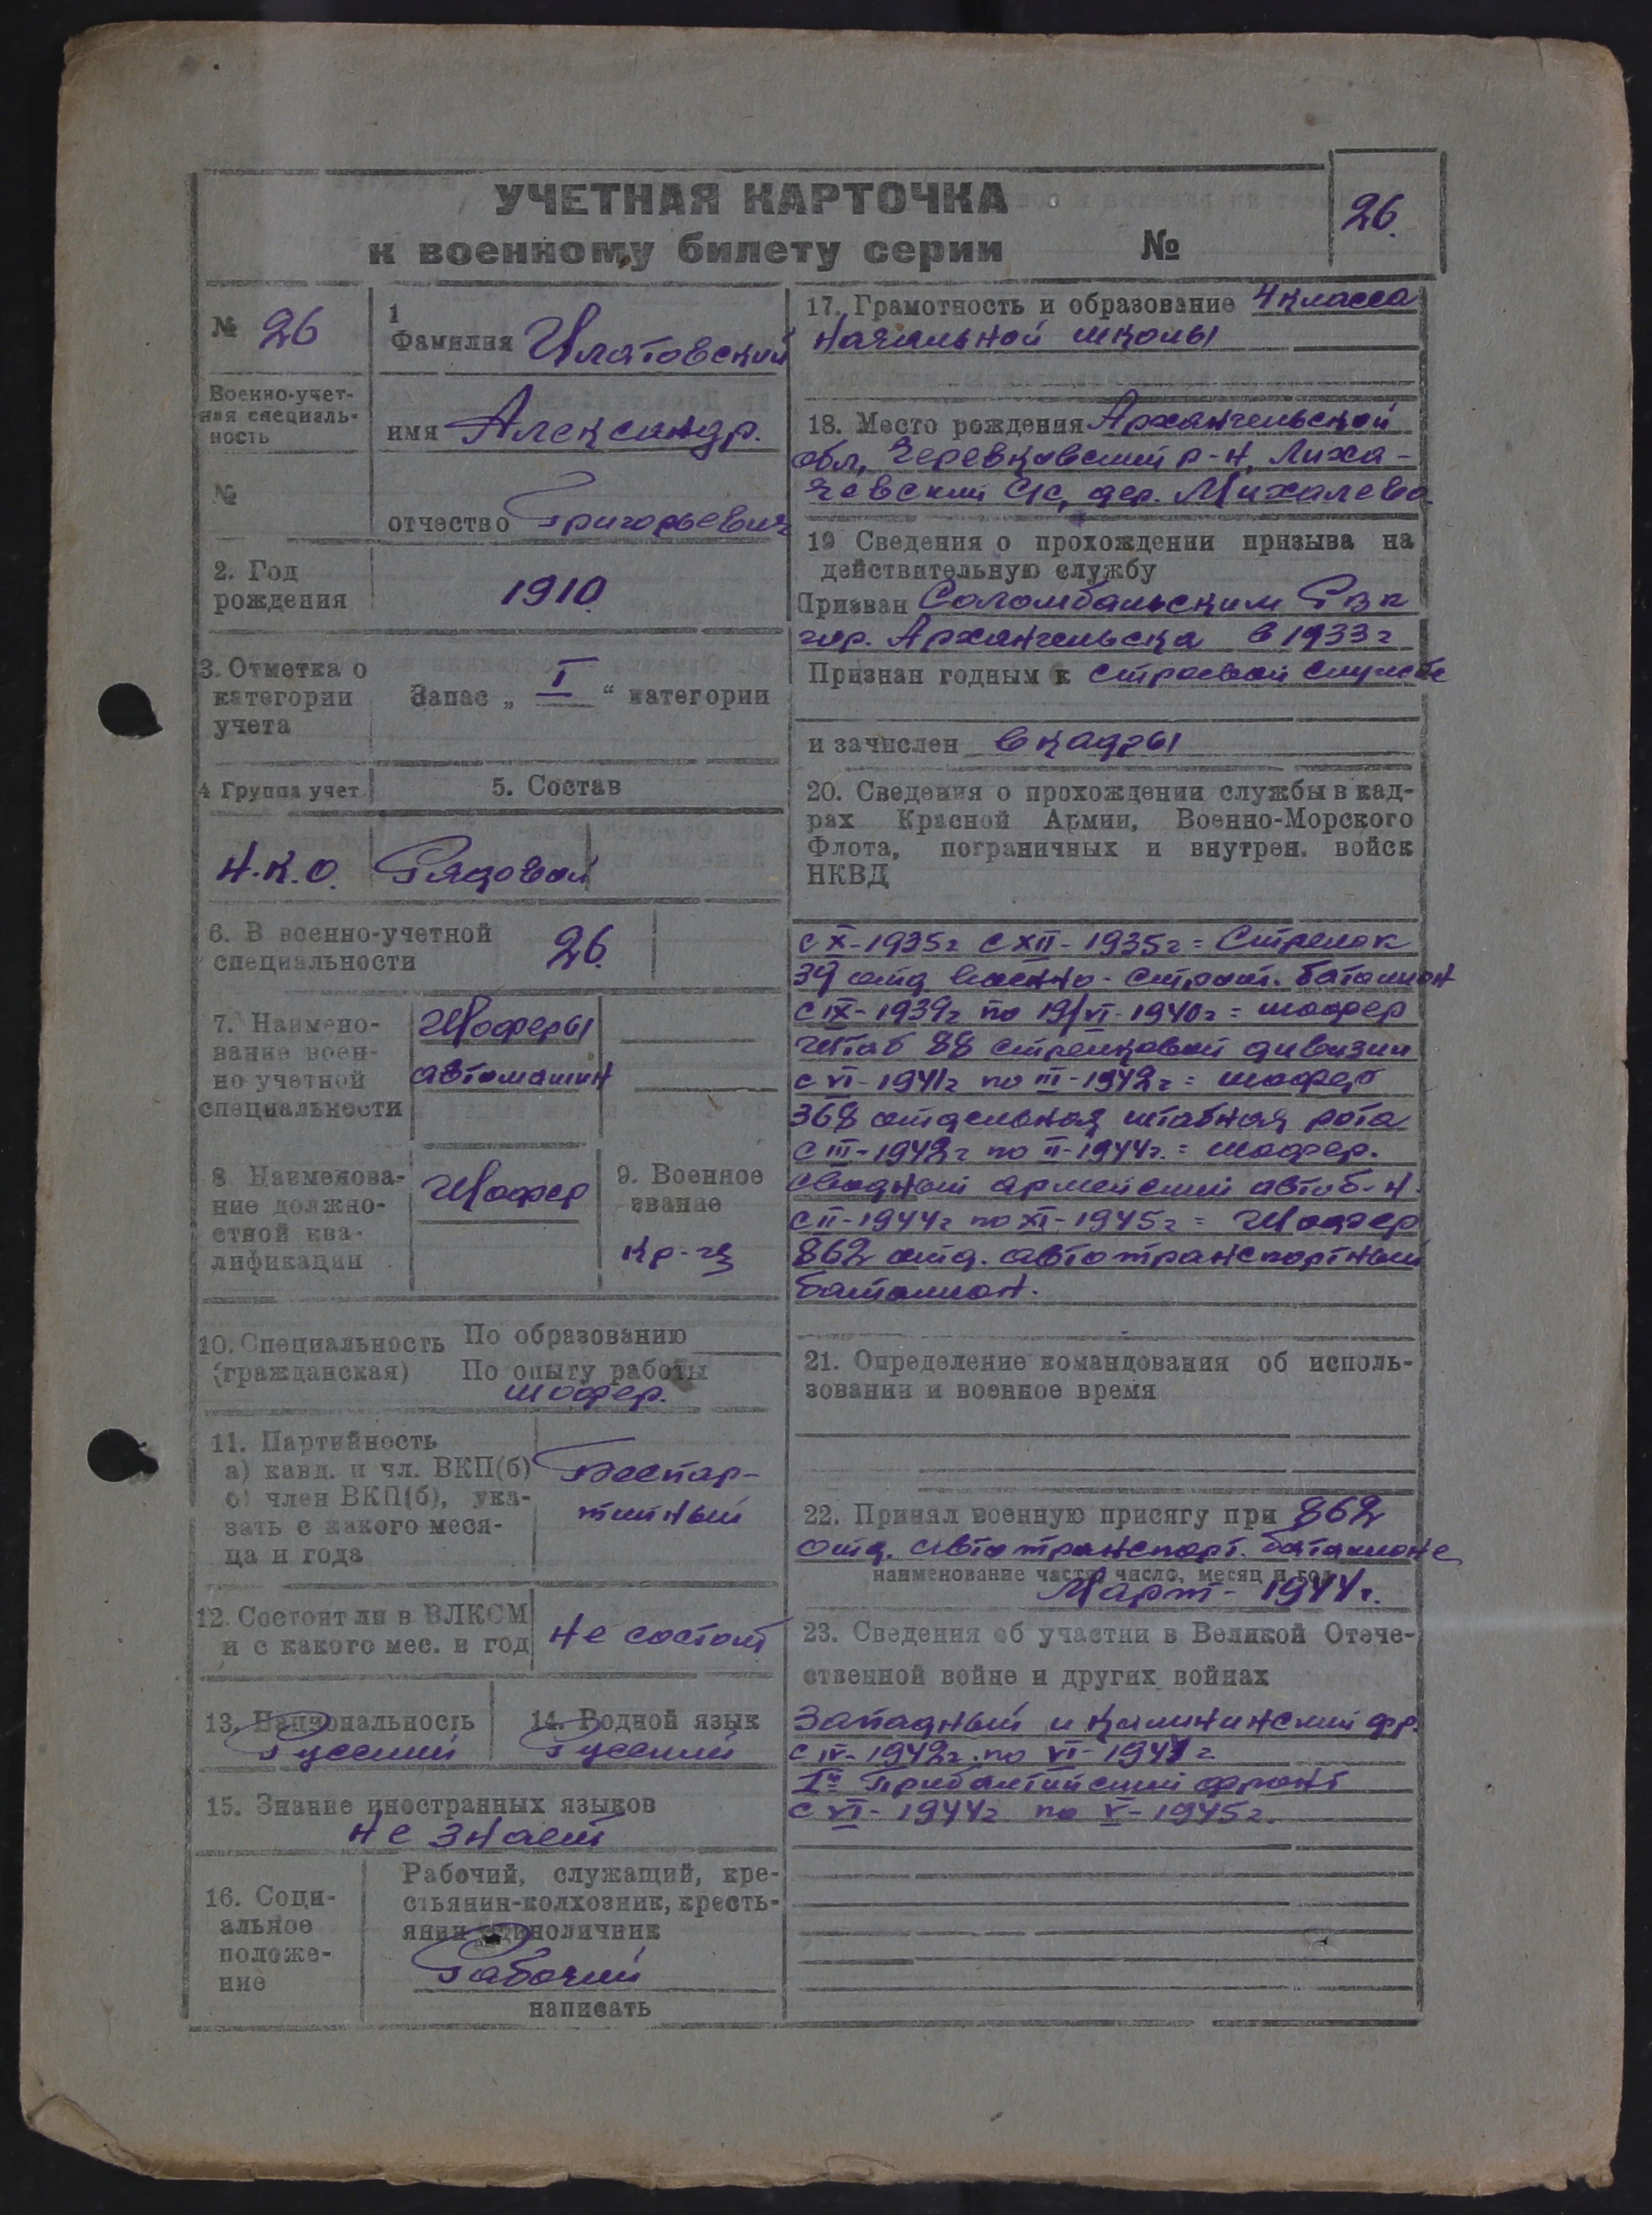 УЧЕТНАЯ КАРТОЧКА
к военному билету серии №
26.
№ 26
Военно-учет-
ная специаль-
ность
№
1
Фамилия Илатовский
имя Александр.
отчество Григорьевич
2. Год
рождения
1910.
3. Отметка о
категории
учета
Запас „ I “ категории
4 Группа учет
5. Состав
Н.К.О. Рядовой
6. В военно-учетной
специальности
26.
7. Наимено-
вание воен-
но учетной
специальности
Шоферы
автомашин
8 Наименова-
ние должно-
стной ква-
лификации
Шофер
9. Военное
звание
Кр-ец
10. Специальность По образованию
(гражданская) По опыту работы
шофер.
11. Партийность
а) канд. и чл. ВКП(б)
б) член ВКП(б), ука-
зать с какого меся-
ца и года
Беспар-
тийный
12. Состоит ли в ВЛКСМ
и с какого мес. и год
не состоит
13. Национальность
Русский
14. Родной язык
Русский
15. Знание иностранных языков
не знает
16. Соци-
альное
положе-
ние
Рабочий, служащий, кре-
стьянин-колхозник, кресть-
янин единоличник
Рабочий
написать
17. Грамотность и образование 4 класса
начальной школы
18. Место рождения Архангельской
обл, Черевковский р-н, Лиха-
чёвский с/с, дер. Михалево
19 Сведения о прохождении призыва на
действительную службу
Призван Соломбальским Рвк
гор. Архангельска в 1933г
Признан годным к строевой службе
и зачислен в кадры
20. Сведения о прохождении службы в кад-
рах Красной Армии, Военно-Морского
Флота, пограничных и внутрен. войск
НКВД
с X-1935г с XII-1935г = Стрелок
39 отд военно-строит. баталион
с IX-1939г по 19/VI-1940г = шофер
Штаб 88 стрелковой дивизии
с VI-1941г по III-1942г = шофер
368 отдельная штабная рота
с III-1942г по II-1944г. = шофер.
сводный армейский автоб-н.
с II-1944г по XI-1945г = Шофер
862 отд. автотранспортный
баталион.
21. Определение командования об исполь-
зовании и военное время
22. Принял военную присягу при 862
отд. автотранспорт. баталионе
наименование части, число, месяц и год
Март - 1944г.
23. Сведения об участии в Великой Отече-
ственной войне и других войнах
Западный и Калининский фр.
с IV-1942г. по VI-1944г
1й Прибалтийский фронт
с VI-1944г по V-1945г.